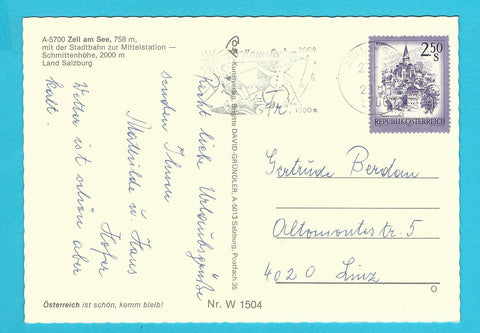 A-5700 Zell am See, 758 m,
mit der Stadtbahn zur Mittelstation –
Schmittenhöhe, 2000 m
Land Salzburg
Recht liebe Urlaubsgrüße
senden Ihnen
Mathilde u. Hans
Hofer
Wetter ist schön aber
kalt.
Österreich ist schön, komm bleib!
Kunstverlag Brigitte DAVID-GRÜNDLER, A-5013 Salzburg, Postfach 35
Nr. W 1504
2000
2.50
S
REPUBLIK ÖSTERREICH
Fr.
Gertrude Berdan
Altomontestr. 5
4020 Linz